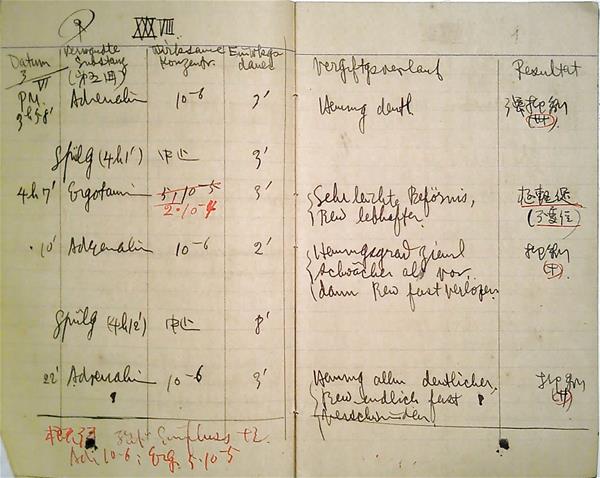 XXXVIII.
Datum
Verwendete Substanz
Wirksame Konzentr.
Einwirkgsdauer
Vergiftgsverlauf
Resultat
3/VI
P.M. 3h58' Adrenalin 10⁻⁶ 2' Hemmg deutl. 強抑制 (卅)
Spülg (4h1') 中止 3'
4h7' Ergotamin 5·10⁻⁵ 3' Sehr leichte Beförng, 極軽促
2·10⁻⁴ Bew lebhafter. (不変位)
10' Adrenalin 10⁻⁶ 2' Hemmungsgrad zieml. 抑制
schwächer als vor, (十)
dann Bew fast verlogen.
Spülg (4h12') 中止 8'
22' Adrenalin 10⁻⁶ 3' Hemmg allm deutlicher, 抑制
Bew endlich fast (廾)
verschwunden.
Einfluss
Ad. 10⁻⁶; Erg. 5·10⁻⁵